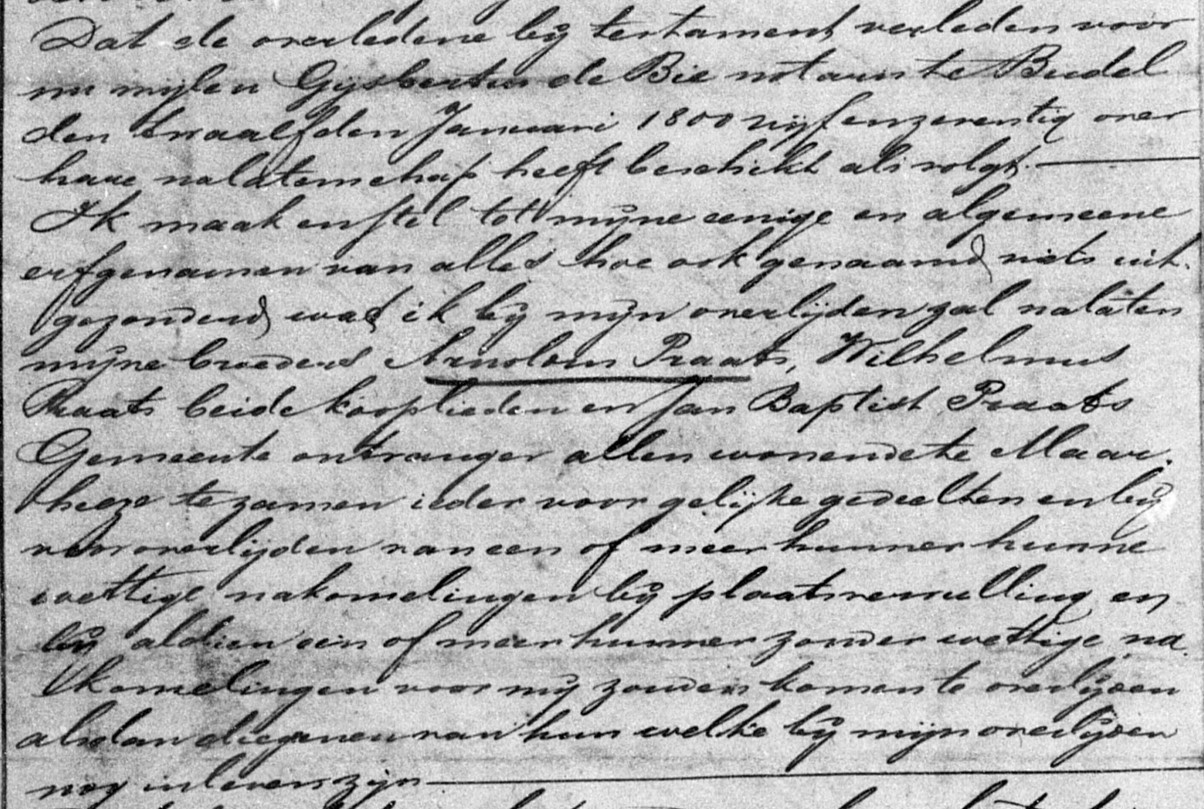 Dat de overledene bij testament verleden voor
nu wijlen Gijsbertus de Bie notaris te Budel
den twaalfden Januari 1800 vijfenzeventig over
hare nalatenschap heeft beschikt als volgt.
Ik maak en stel tot mijne eenige en algemeene
erfgenamen van alles hoe ook genaamd niets uit-
gezonderd wat ik bij mijn overlijden zal nalaten
mijne broeders Arnoldus Praats, Wilhelmus
Praats beide kooplieden en Jan Baptist Praats
Gemeente ontvanger allen wonende te Maar-
heeze te zamen ieder voor gelijke gedeelten en bij
vooroverlijden van een of meer hunner hunne
wettige nakomelingen bij plaatsvervulling en
bij aldien een of meer hunner zonder wettige na-
komelingen voor mij zouden komen te overlijden
alsdan diegenen van hun welke bij mijn overlijden
nog in leven zijn